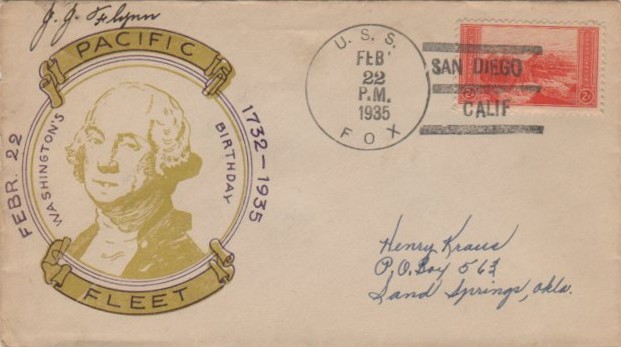 J. J. Flynn
PACIFIC
FEBR. 22
WASHINGTON'S
BIRTHDAY
1732-1935
FLEET
U. S. S.
FEB'
22
P.M.
1935
FOX
SAN DIEGO
CALIF
Henry Kraus
P.O. Box 563
Sand Springs, Okla.